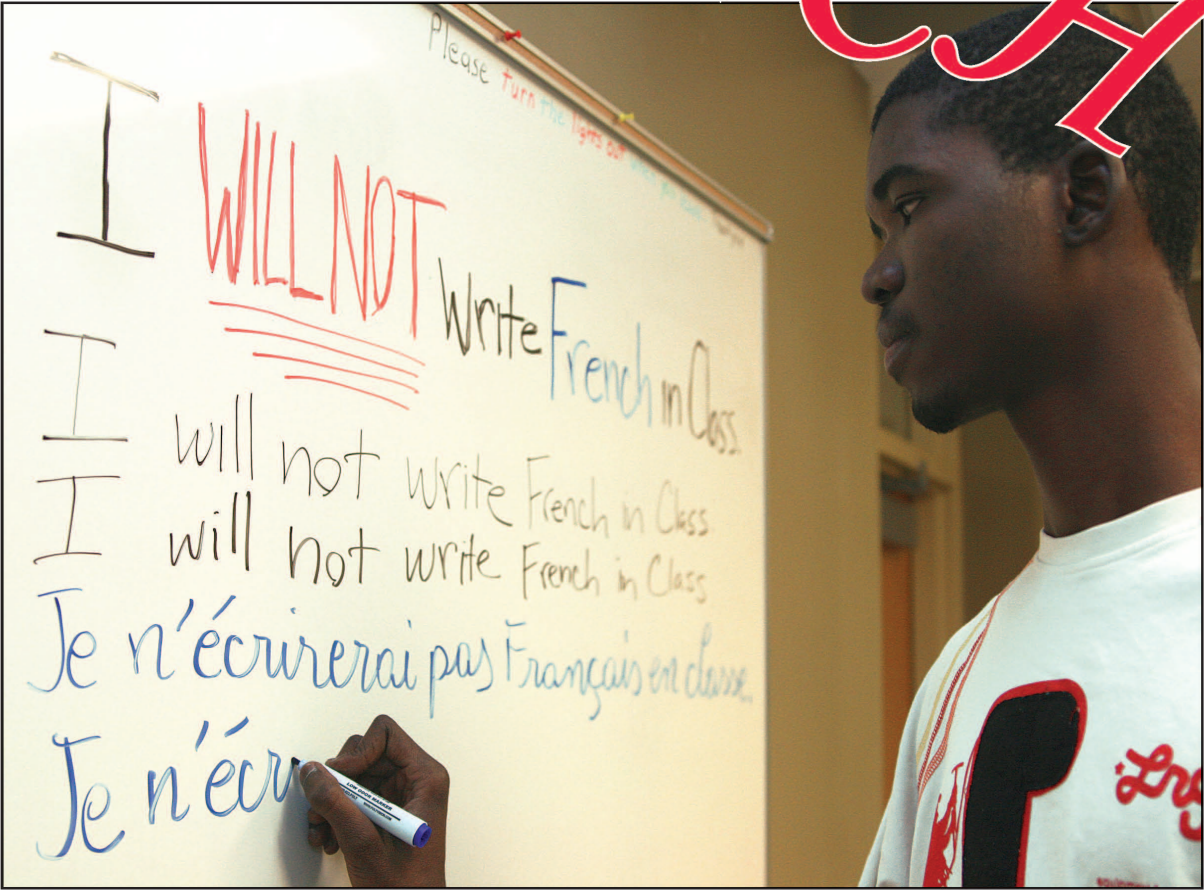 CH
Please turn the lights out when you
I WILL NOT Write French in Class
I will not write French in Class
I will not write French in Class
Je n'écrirerai pas Français en classe.
Je n'écr
LOW ODOR MARKER